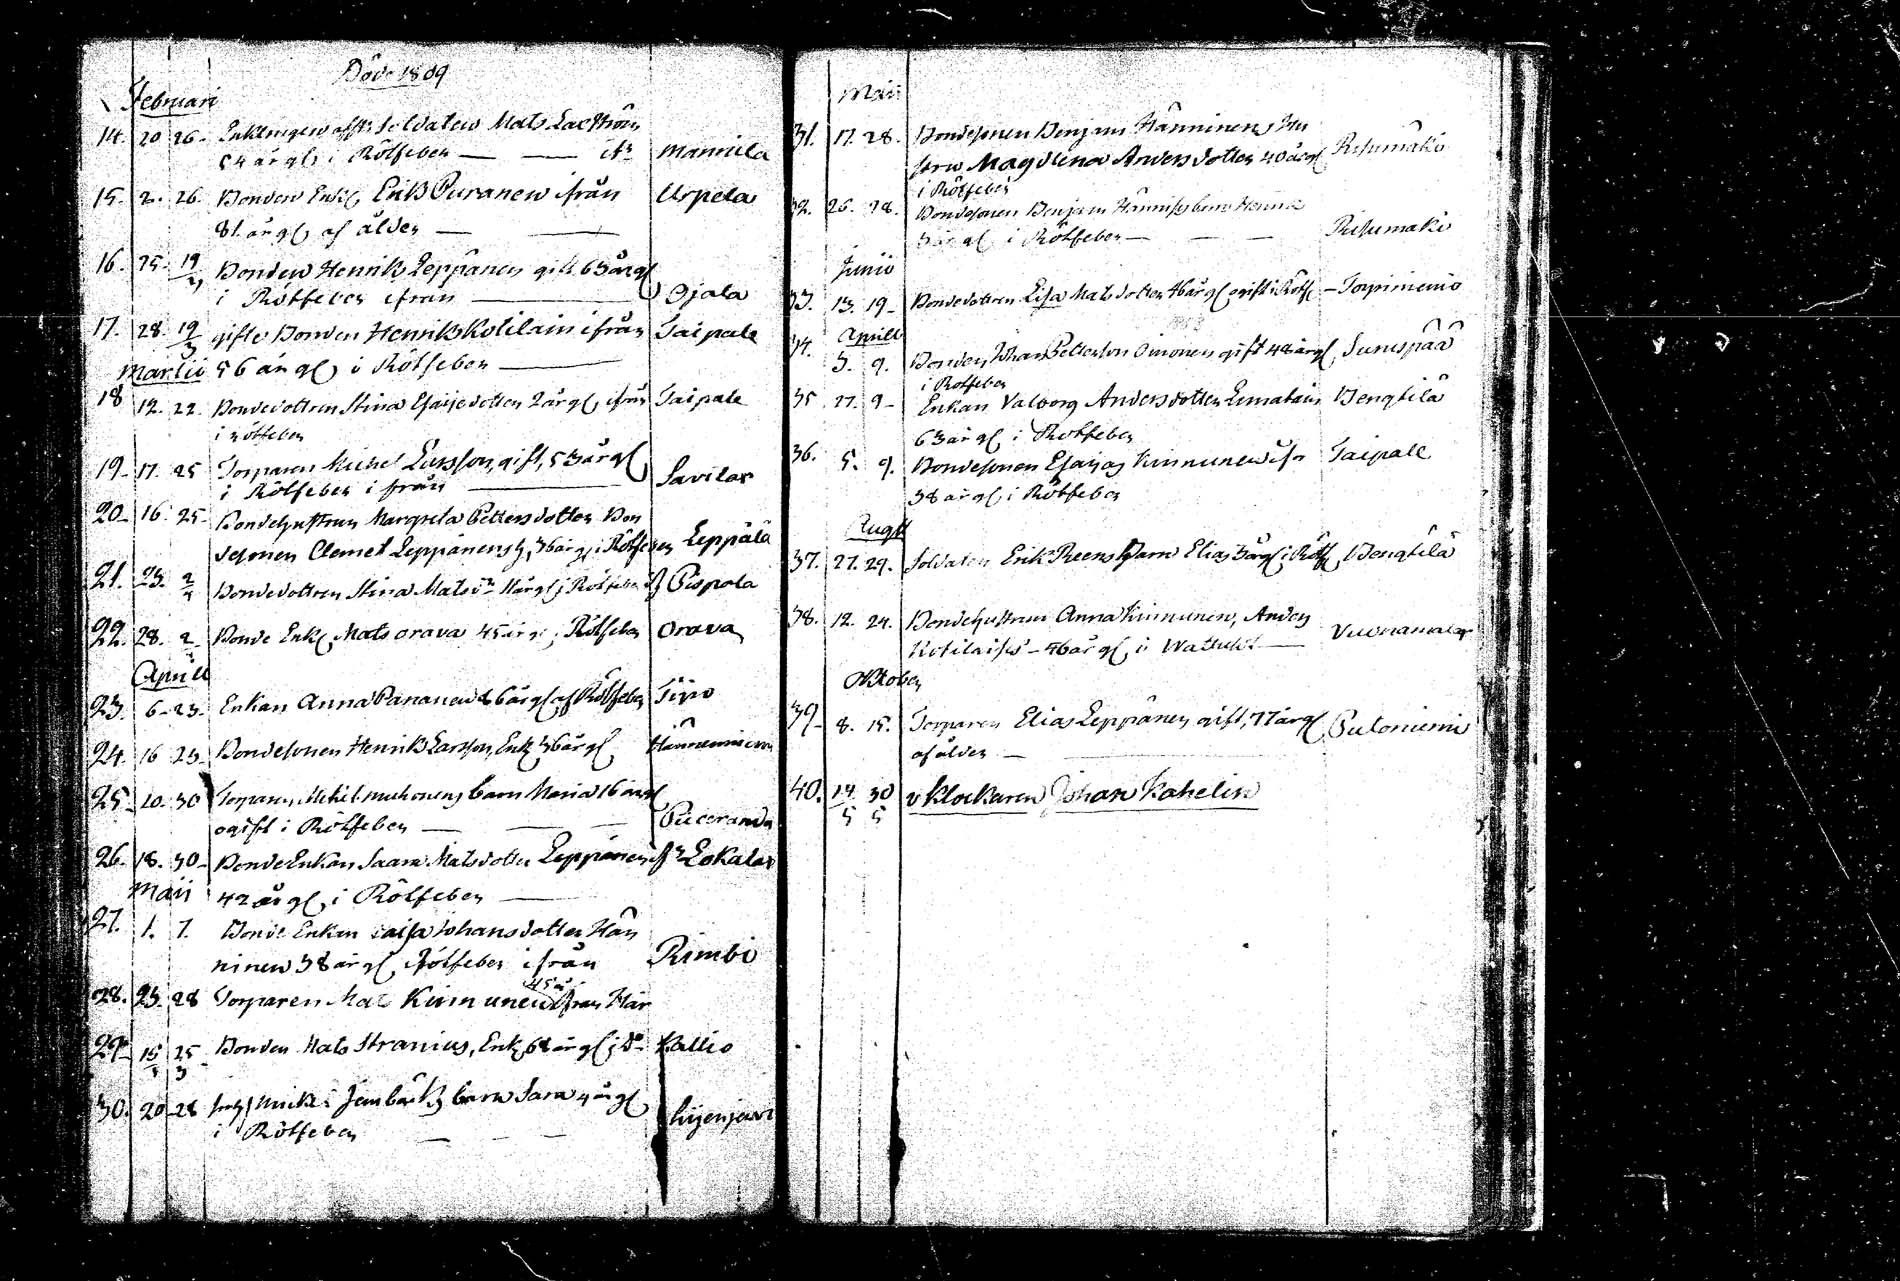 Döde 1809
Februari
14. 20 26. Enklingen afsk: Soldaten Mats
54 år gl i Rötfeber — — Mannila
15. 2. 26. Bonden Enkl Erik Puranen ifrån Urpela
81 år gl af ålder — —
16. 25. 19 Bonden Henrik Leppänen gift 63 år gl
i Rötfeber ifrån — Ojala
17. 28. 19/3 gifte Bonden Henrik Kotilain ifrån Taipale
Martii 56 år gl i Rötfeber —
18 12. 22. Bondedottren Stina Esaiædotter 2 år gl ifrån Taipale
i rötfeber
19. 17. 25 Torparen Michel Larsson, gift, 53 år gl
i Rötfeber ifrån — Savilax
20. 16. 25. Bondehustrun Margreta Pettersdotter Bon
desonen Clemet Leppänens h, 36 år gl i Rötfeber Leppälä
21. 23. 2 Bondedottren Stina Matsdr år gl i Rötfeber Pispala
22. 28. 2 Bonde Enkl Mats Orava 45 år gl Rötfeber Orava
Aprill
23. 6. 23. Enkan Anna Pananen 6 år gl af Rötfeber
24. 16 23. Bondesonen Henrik Larsson, Enkl 36 år gl Hännenniemi
25. 20. 30 Torparen Michel Muhonens barn Maria 16 år gl
ogift i Rötfeber — — —
26. 18. 30. Bonde Enkan Saara Matsdotter Leppänen Lokalax
Maii 42 år gl i Rötfeber —
27. 1. 7. Bonde Enkan Caisa Johansdotter Hän
ninen 38 år gl Rötfeber ifrån Rimbi
45 år
28. 23. 28 Torparen Mat Kinnunen ifrån Här
29. 15 25/3 Bonden Mats Stranius, Enkl 61 år gl i do Kallio
30. 20 28 barn Sara 4 år gl
i Rötfeber — — —
Maii
31. 17. 28. Bondesonen Benjam Hänninens Hu
stru Magdlena Andersdotter 40 år gl Risumäki
i Rötfeber
32. 26. 28. Bondesonen Benjam barn Henric
3 år gl i Rötfeber — — — Risumäki
Junii
33. 13. 19. Bondedottren Lisa Matsdotter 46 år gl ogift i Rötf — Torpiniemi
34. Aprill
3. 9. Bonden Johan Petterson Oinonen gift 48 år gl
i Rötfeber
35 27. 9. Enkan Valborg Andersdotter Bengtilä
63 år gl i Rötfeber
36. 5. 9. Bondesonen Esaias Kinnunen Taipale
38 år gl i Rötfeber
Augt
37. 27. 29. Soldaten Erik Reens Barn Elias 3 år gl i Rötf Bengtilä
38. 12. 24. Bondehustrun Anna Kinnunen, Anders
46 år gl i Wattusot — Vuonamalax
Oktober
39. 8. 15. Torparen Elias Leppänen gift, 77 år gl Putoniemi
af ålder —
40. 14/5 30/5 v Klockaren Johan Kahelin